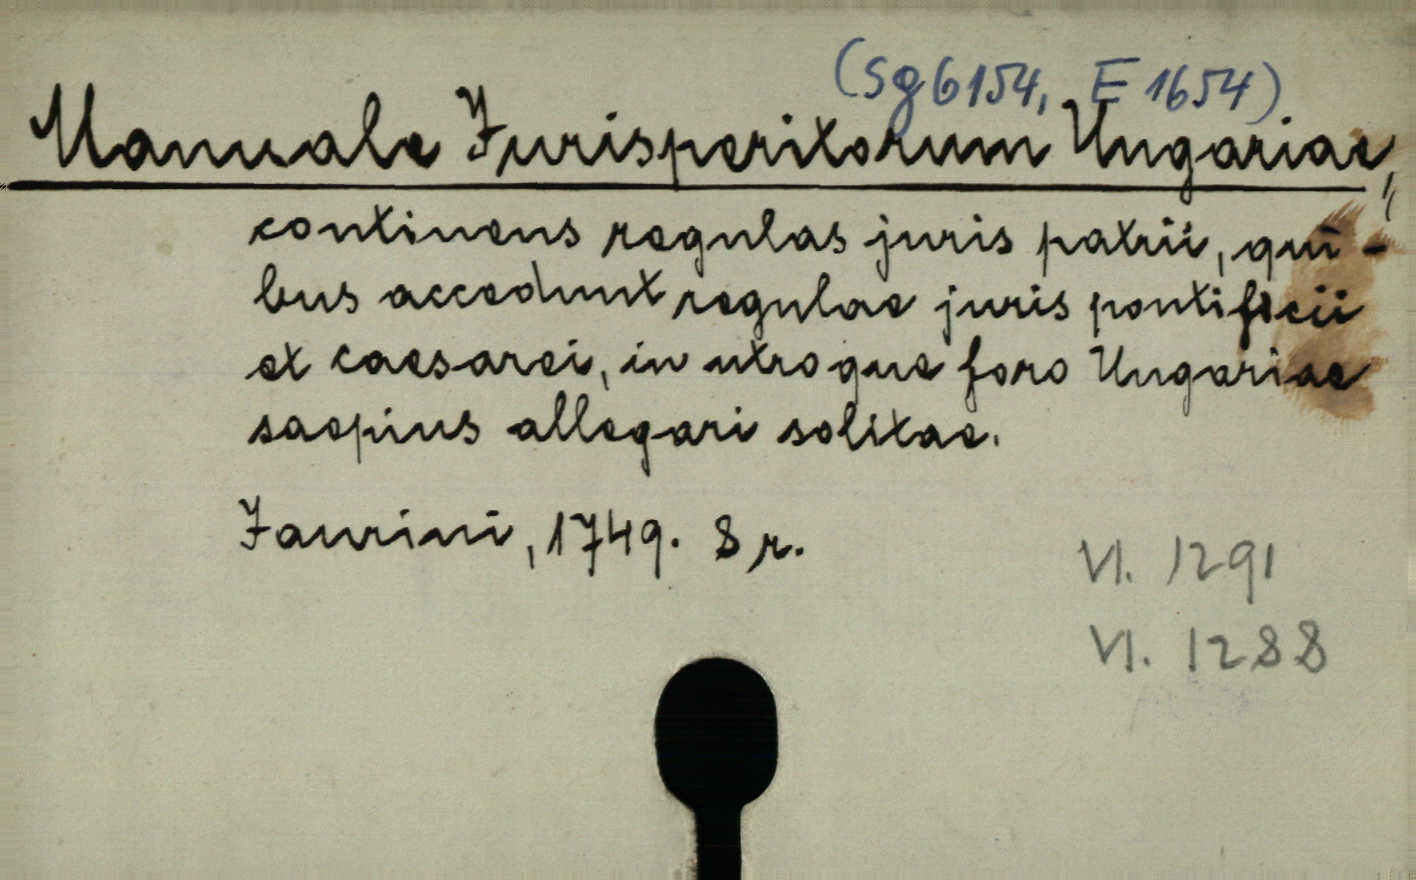 (Sg 6154, E 1654)
Manuale Jurisperitorum Ungariae,
continens regulas juris patrii, qui-
bus accedunt regulae juris pontificii
et caesarei, in utroque foro Ungariae
saepius allegari solitae.
Jaurini, 1749. 8 r.
VI. 1291
VI. 1288